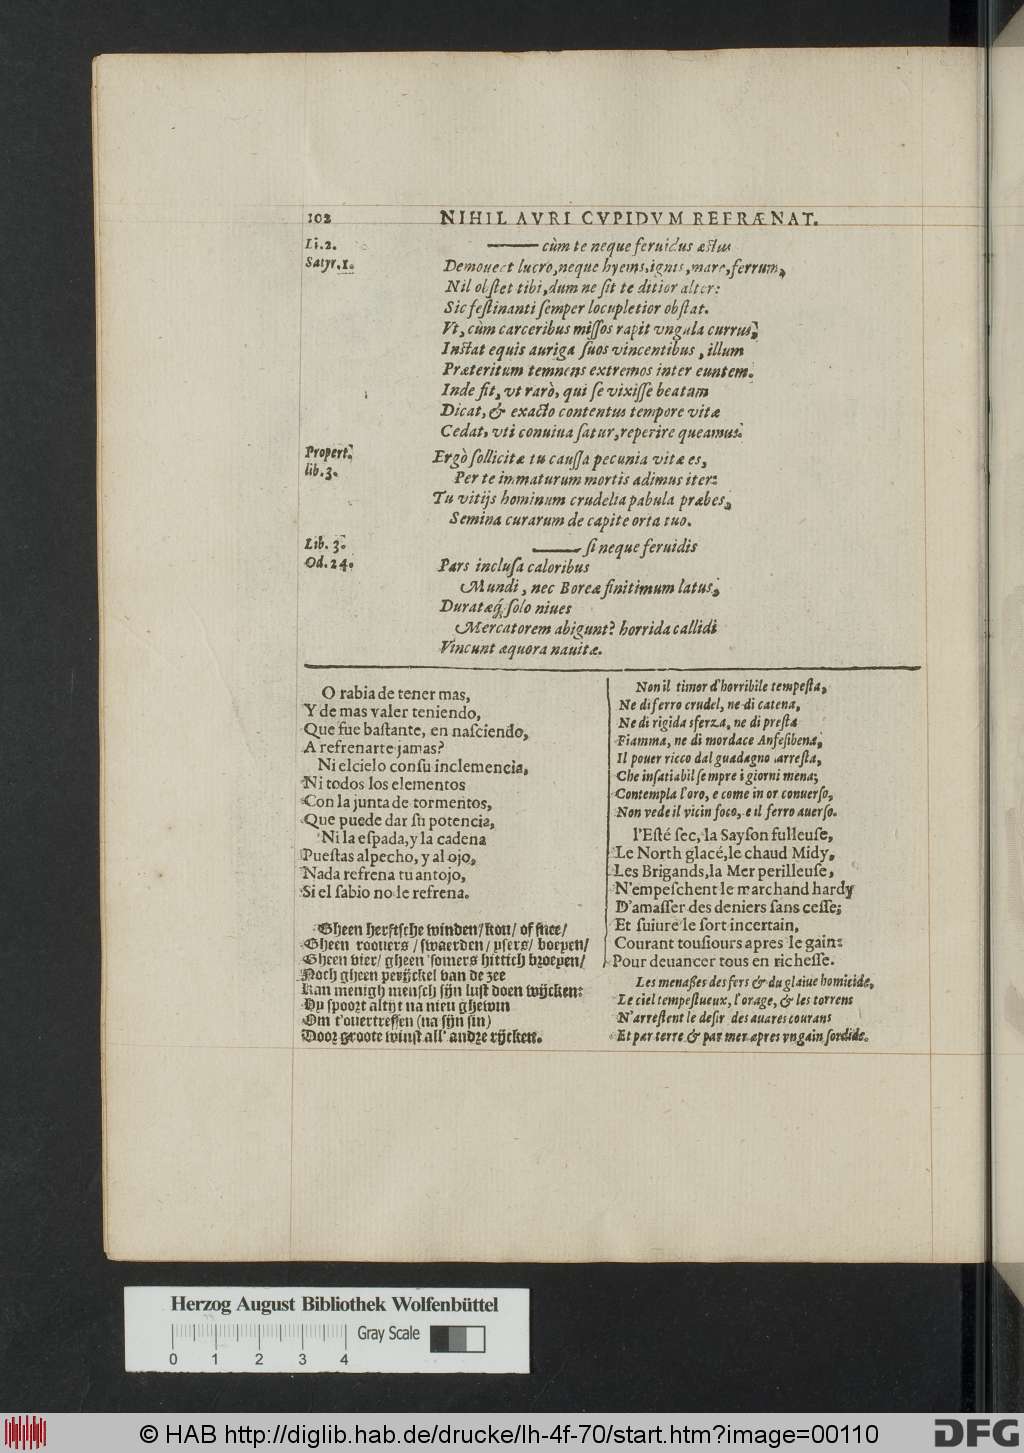 102 NIHIL AVRI CVPIDVM REFRÆNAT.
Li.2. cùm te neque feruidus æstus
Satyr.1. Demoueat lucro, neque hyems, ignis, mare, ferrum,
Nil obstet tibi, dum ne sit te ditior alter:
Sic festinanti semper locupletior obstat.
Vt, cùm carceribus missos rapit vngula currus,
Instat equis auriga suos vincentibus, illum
Præteritum temnens extremos inter euntem.
Inde fit, vt rarò, qui se vixisse beatam
Dicat, & exacto contentus tempore vitæ
Cedat, vti conuiua satur, reperire queamus.
Propert. Ergò sollicitæ tu caussa pecunia vitæ es,
lib.3. Per te immaturum mortis adimus iter:
Tu vitijs hominum crudelia pabula præbes,
Semina curarum de capite orta tuo.
Lib. 3. si neque feruidis
Od. 24. Pars inclusa caloribus
Mundi, nec Boreæ finitimum latus,
Duratæq́; solo niues
Mercatorem abigunt? horrida callidi
Vincunt æquora nauitæ.
O rabia de tener mas,
Y de mas valer teniendo,
Que fue bastante, en nasciendo,
A refrenarte jamas?
Ni el cielo con su inclemencia,
Ni todos los elementos
Con la junta de tormentos,
Que puede dar su potencia,
Ni la espada, y la cadena
Puestas al pecho, y al ojo,
Nada refrena tu antojo,
Si el sabio no le refrena.
Gheen herftsche winden/ kou/ of snee/
Gheen roovers/ swaerden/ ysers/ boeyen/
Gheen vier/ gheen somers hittich broeyen/
Noch gheen perijckel van de zee
Kan menigh mensch sijn lust doen wijcken:
Hy spoort altijt na nieu ghewin
Om t'overtreffen (na sijn sin)
Door groote winst all' andre rijcken.
Non il timor d'horribile tempesta,
Ne di ferro crudel, ne di catena,
Ne di rigida sferza, ne di presta
Fiamma, ne di mordace Anfesibena,
Il pouer ricco dal guadagno arresta,
Che insatiabil sempre i giorni mena;
Contempla l'oro, e come in or conuerso,
Non vede il vicin foco, e il ferro auerso.
l'Esté sec, la Sayson fulleuse,
Le North glacé, le chaud Midy,
Les Brigands, la Mer perilleuse,
N'empeschent le marchand hardy
D'amasser des deniers sans cesse;
Et suiure le sort incertain,
Courant tousiours apres le gain:
Pour deuancer tous en richesse.
Les menaßes des fers & du glaiue homicide,
Le ciel tempestueux, l'orage, & les torrens
N'arrestent le desir des auares courans
Et par terre & par mer apres vn gain sordide.
Herzog August Bibliothek Wolfenbüttel
Gray Scale
0 1 2 3 4
© HAB http://diglib.hab.de/drucke/lh-4f-70/start.htm?image=00110
DFG